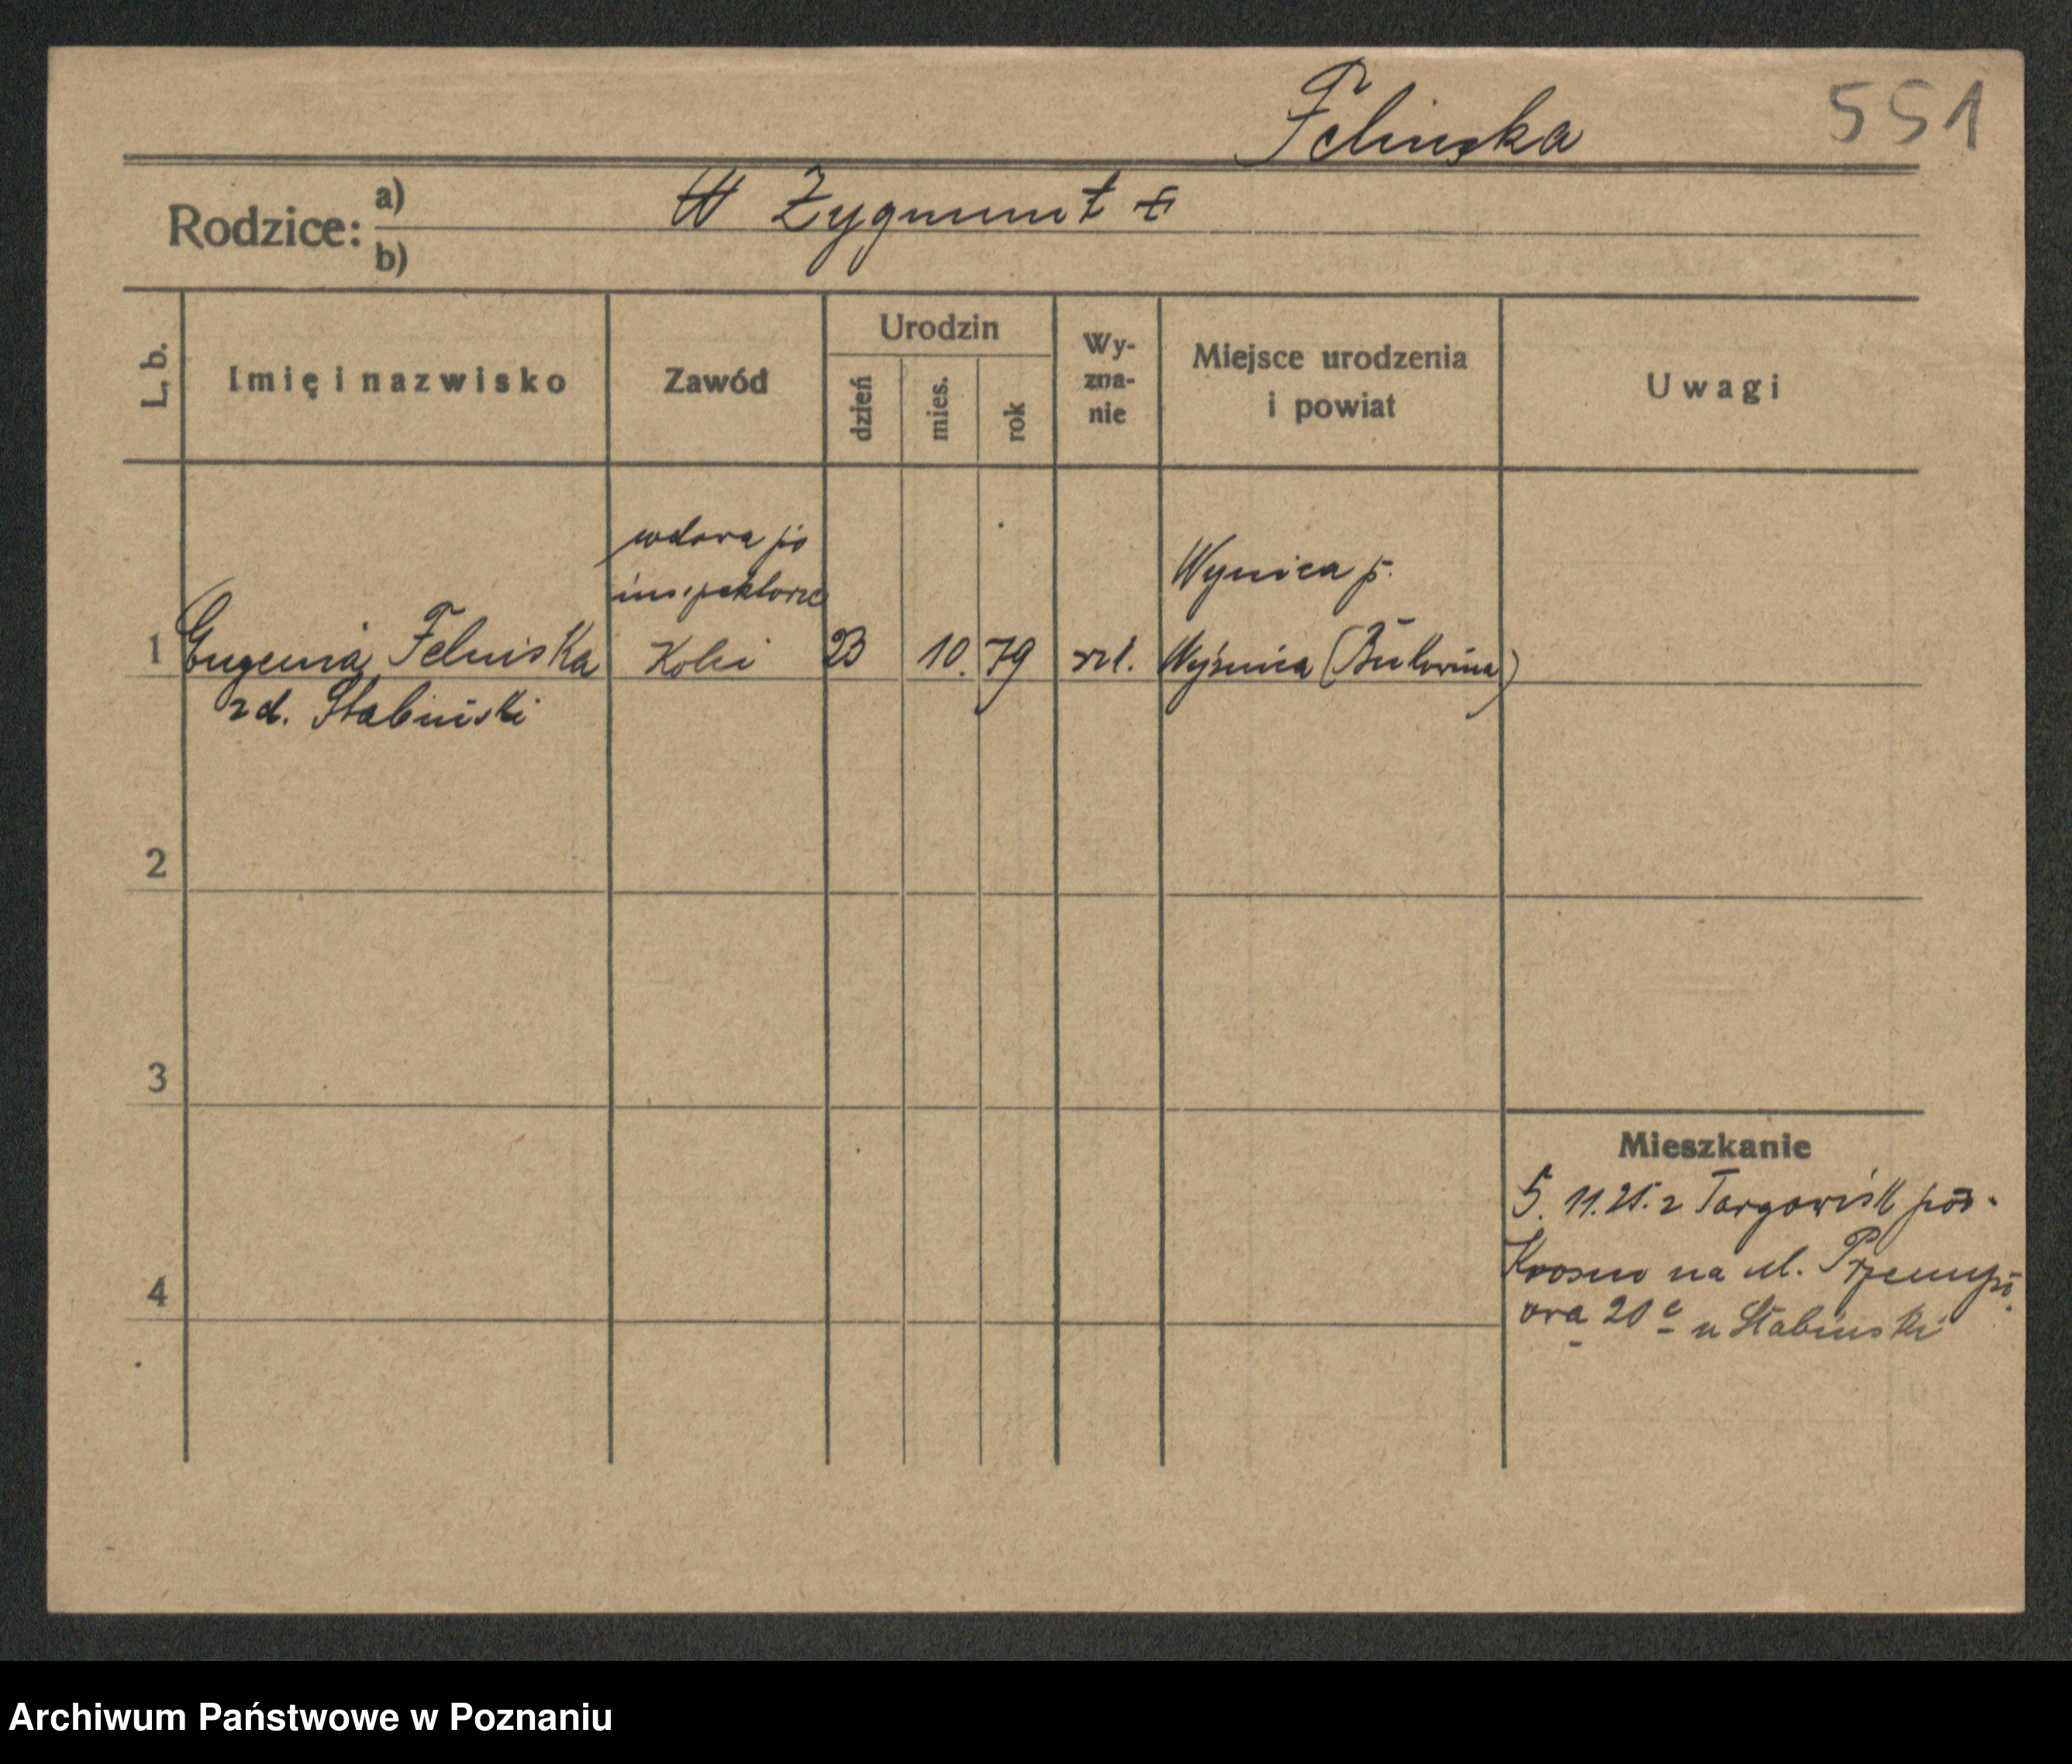 Felinska
551
Rodzice: a)
W Zygmunt
b)
L. b.
Imię i nazwisko
Zawód
Urodzin
dzień
mies.
rok
Wy-
zna-
nie
Miejsce urodzenia
i powiat
Uwagi
wdowa po
inspektorze
Kolei
1
Eugenia Felinska
zd. Stabinski
23
10.
79
rzk.
Wynica p.
Wyżnica (Bukowina)
2
3
4
Mieszkanie
5. 11. 25. z Targowisk pow.
Krosno na ul. Przemysł
owa 20 u Stabinski
Archiwum Państwowe w Poznaniu